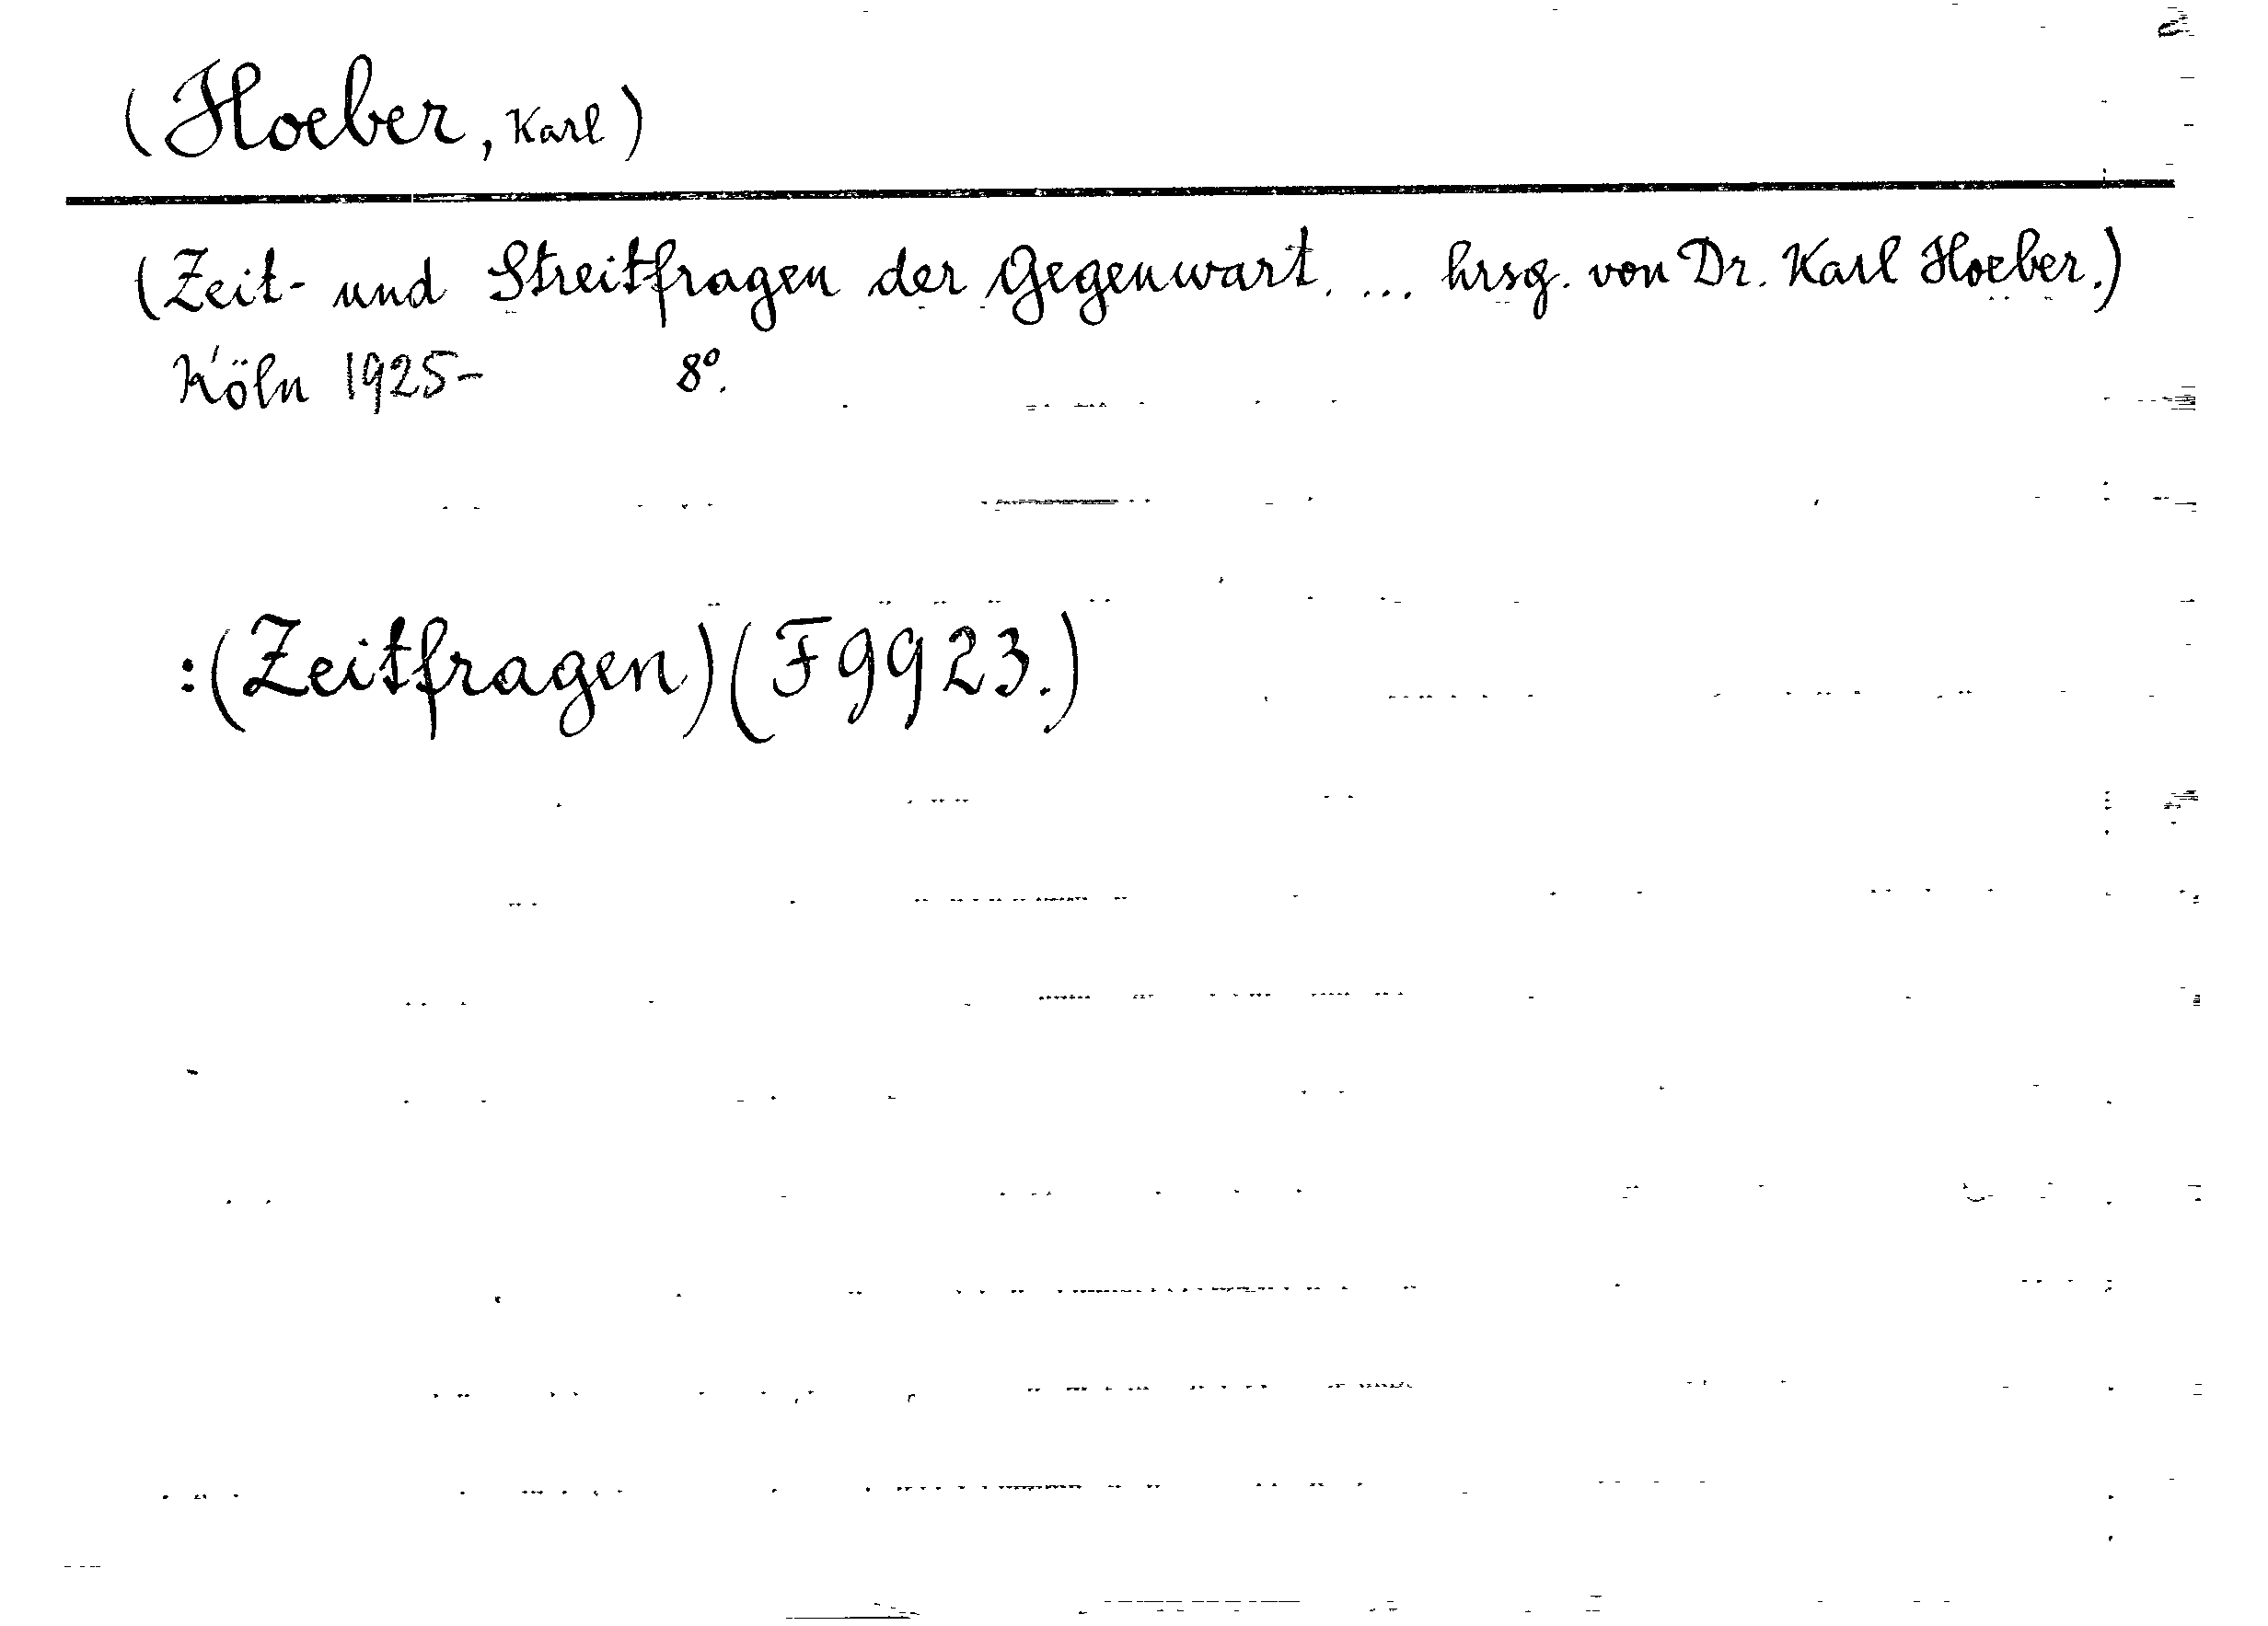 (Hoeber, Karl)
(Zeit- und Streitfragen der Gegenwart. ... hrsg. von Dr. Karl Hoeber.)
Köln 1925- 8°.
:(Zeitfragen)(F 9923.)